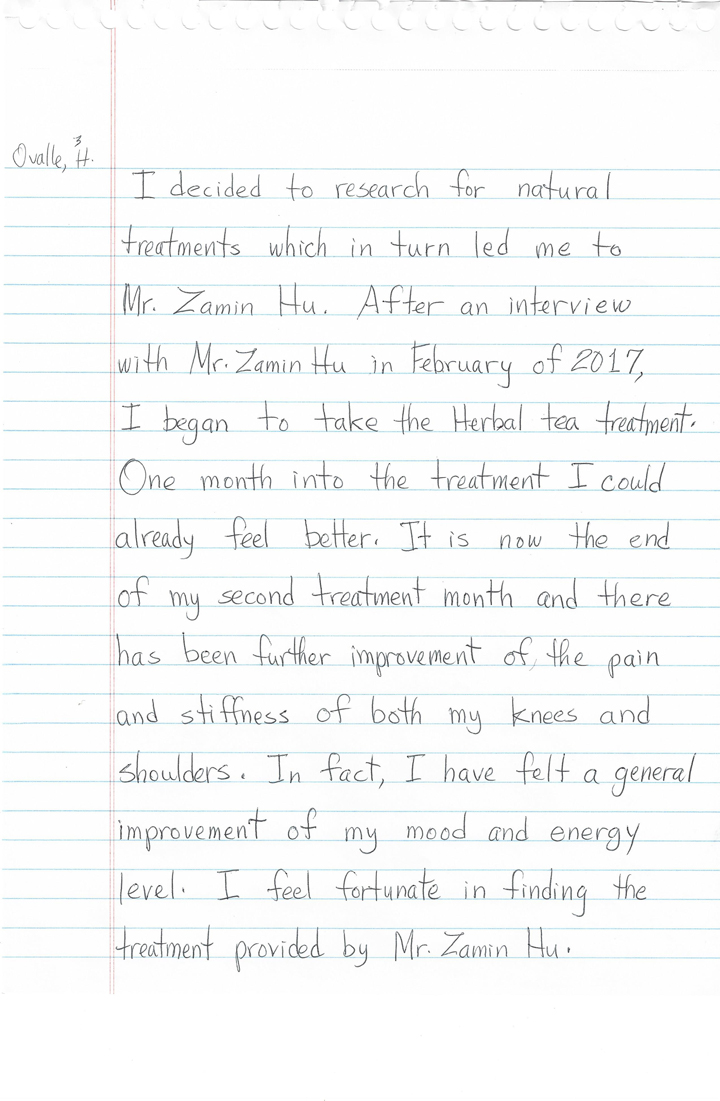 3
Ovalle, H.
I decided to research for natural
treatments which in turn led me to
Mr. Zamin Hu. After an interview
with Mr. Zamin Hu in February of 2017,
I began to take the Herbal tea treatment.
One month into the treatment I could
already feel better. It is now the end
of my second treatment month and there
has been further improvement of the pain
and stiffness of both my knees and
shoulders. In fact, I have felt a general
improvement of my mood and energy
level. I feel fortunate in finding the
treatment provided by Mr. Zamin Hu.